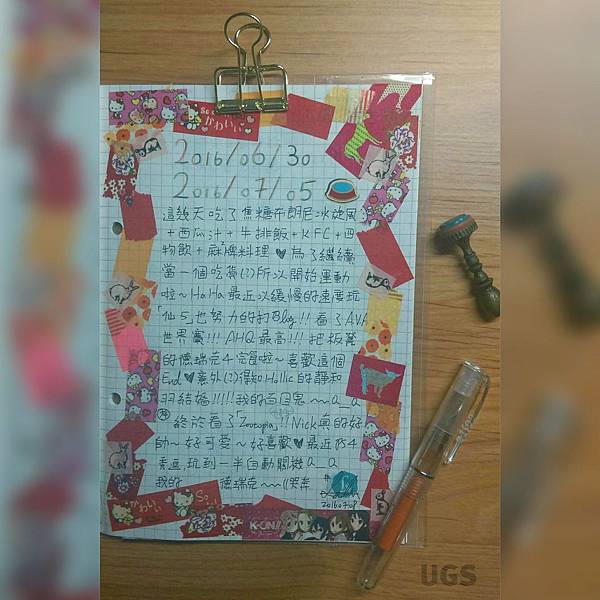 2016/06/30
2016/07/05
這幾天吃了焦糖布朗尼冰旋風
+西瓜汁+牛排飯+KFC+四
物飲+麻辣料理♥為了繼續
當一個吃貨(?)所以開始運動
啦~HaHa最近以緩慢的速度玩
仙5也努力的打Blog!!看了AVA
世界賽!!!AHQ最高!!!把板駕
的德瑞克4完食啦~喜歡這個
End♥意外(?)得知Hollic的靜和
羽結婚!!!!!我的百目鬼~~a_a
終於看了「Zootopia」!!Nick真的好
帥~好可愛~好喜歡♥最近仍4
玩到一半自動關機a_a
我的 德瑞克~~((哭奔
20160708
かわいい
かわいい
So
K-ON!
UGS